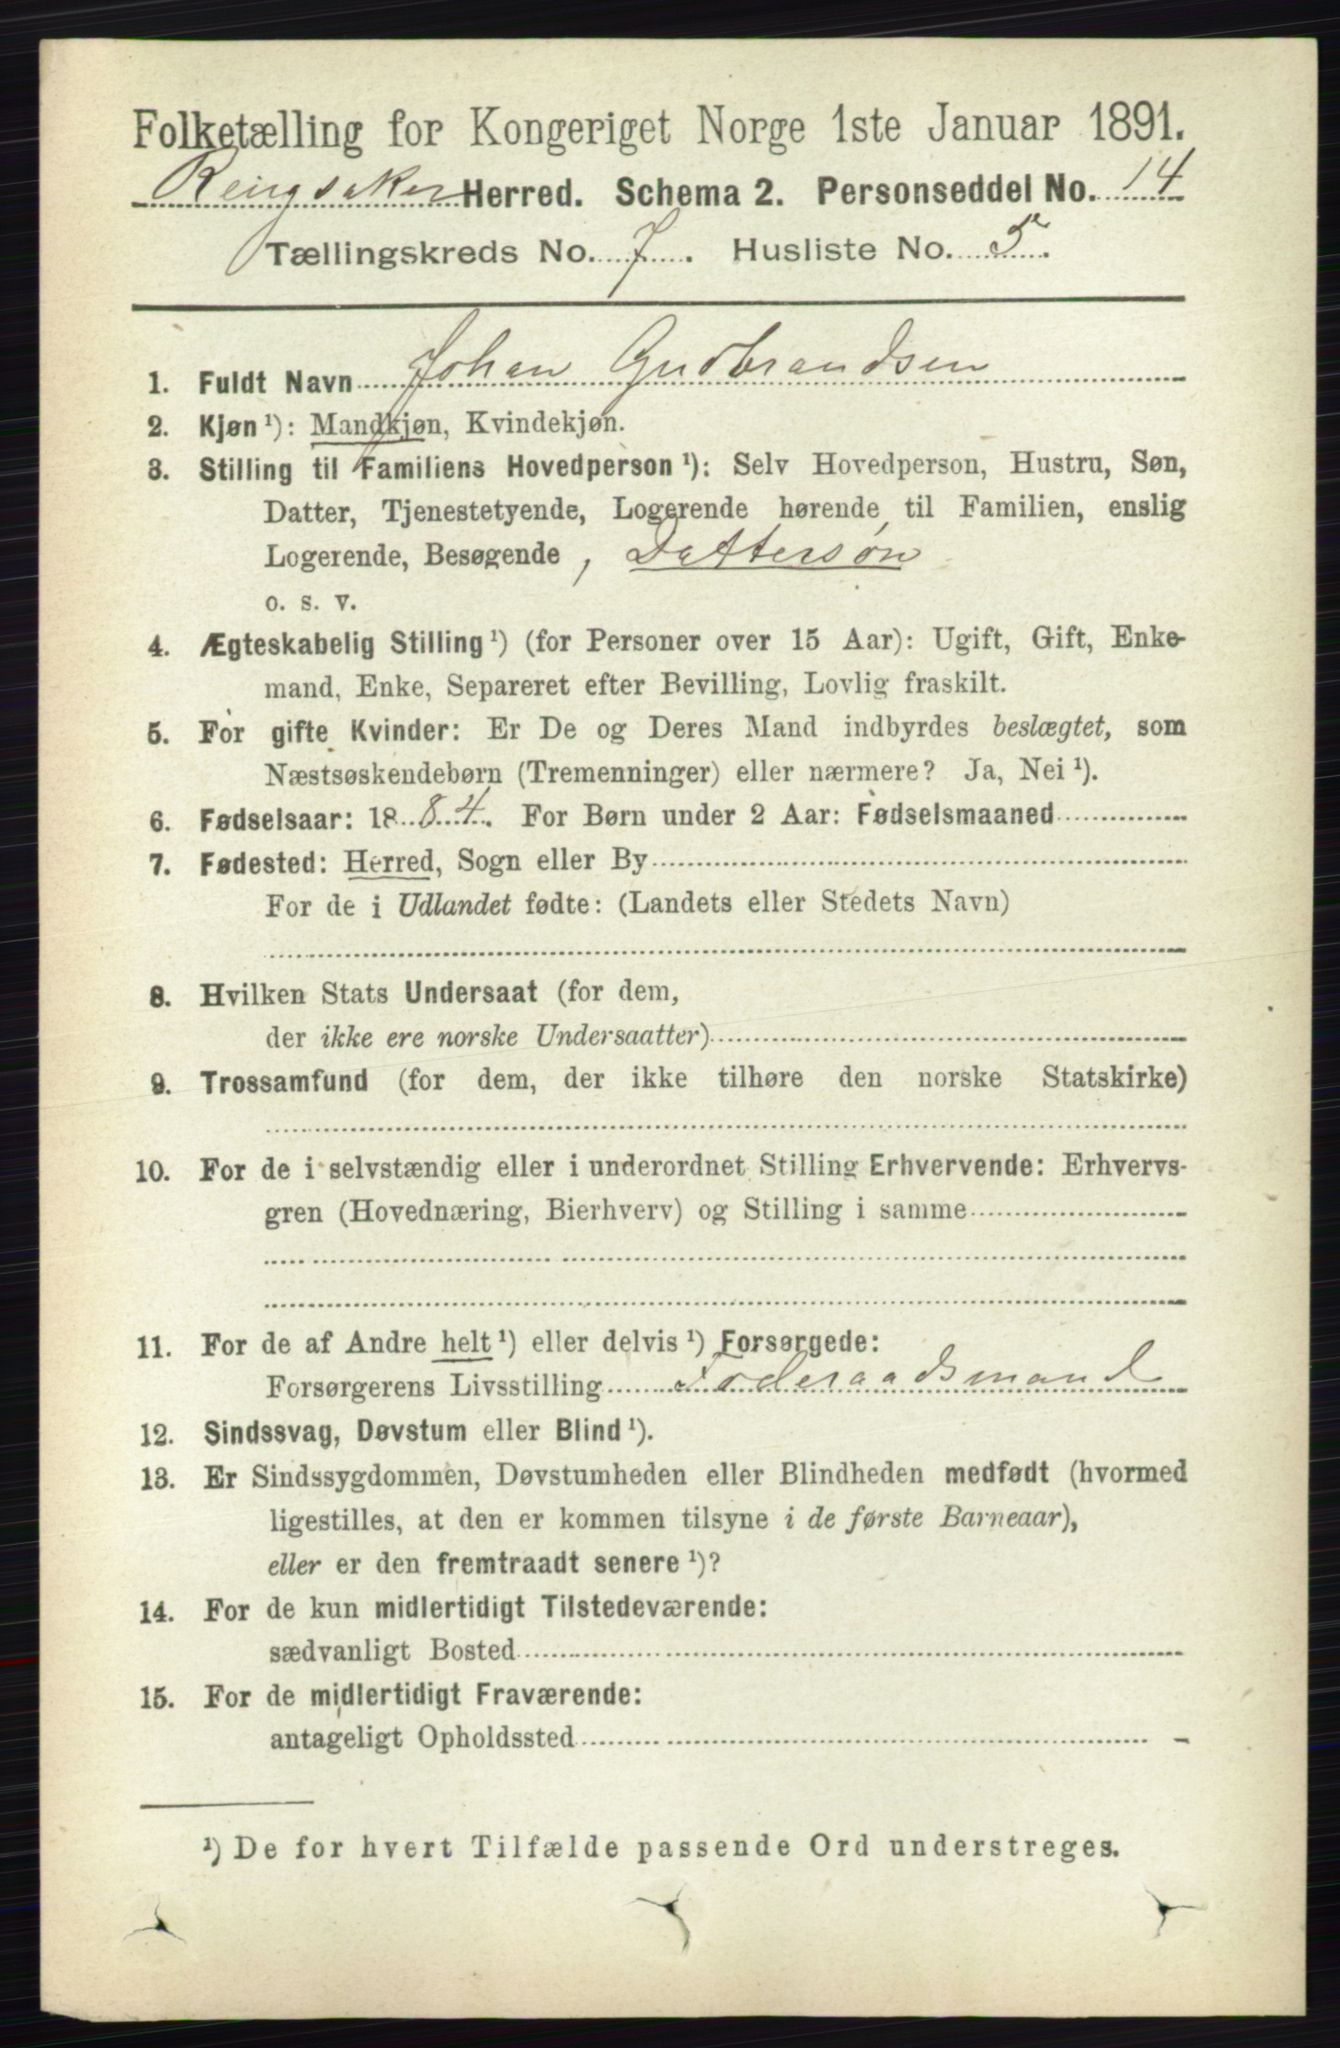 Folketælling for Kongeriget Norge 1ste Januar 1891.
Ringsaker Herred. Schema 2. Personseddel No. 14
Tællingskreds No. 7. Husliste No. 5.
1. Fuldt Navn Johan Gudbrandsen
2. Kjøn ¹): Mandkjøn, Kvindekjøn.
3. Stilling til Familiens Hovedperson ¹): Selv Hovedperson, Hustru, Søn,
Datter, Tjenestetyende, Logerende hørende til Familien, enslig
Logerende, Besøgende, Dattersøn
o. s. v.
4. Ægteskabelig Stilling ¹) (for Personer over 15 Aar): Ugift, Gift, Enke-
mand, Enke, Separeret efter Bevilling, Lovlig fraskilt.
5. For gifte Kvinder: Er De og Deres Mand indbyrdes beslægtet, som
Næstsøskendebørn (Tremenninger) eller nærmere? Ja, Nei ¹).
6. Fødselsaar: 1884. For Børn under 2 Aar: Fødselsmaaned
7. Fødested: Herred, Sogn eller By
For de i Udlandet fødte: (Landets eller Stedets Navn)
8. Hvilken Stats Undersaat (for dem,
der ikke ere norske Undersaatter)
9. Trossamfund (for dem, der ikke tilhøre den norske Statskirke)
10. For de i selvstændig eller i underordnet Stilling Erhvervende: Erhvervs-
gren (Hovednæring, Bierhverv) og Stilling i samme
11. For de af Andre helt ¹) eller delvis ¹) Forsørgede:
Forsørgerens Livsstilling Foderaadsmand
12. Sindssvag, Døvstum eller Blind ¹).
13. Er Sindssygdommen, Døvstumheden eller Blindheden medfødt (hvormed
ligestilles, at den er kommen tilsyne i de første Barneaar),
eller er den fremtraadt senere ¹)?
14. For de kun midlertidigt Tilstedeværende:
sædvanligt Bosted
15. For de midlertidigt Fraværende:
antageligt Opholdssted
¹) De for hvert Tilfælde passende Ord understreges.